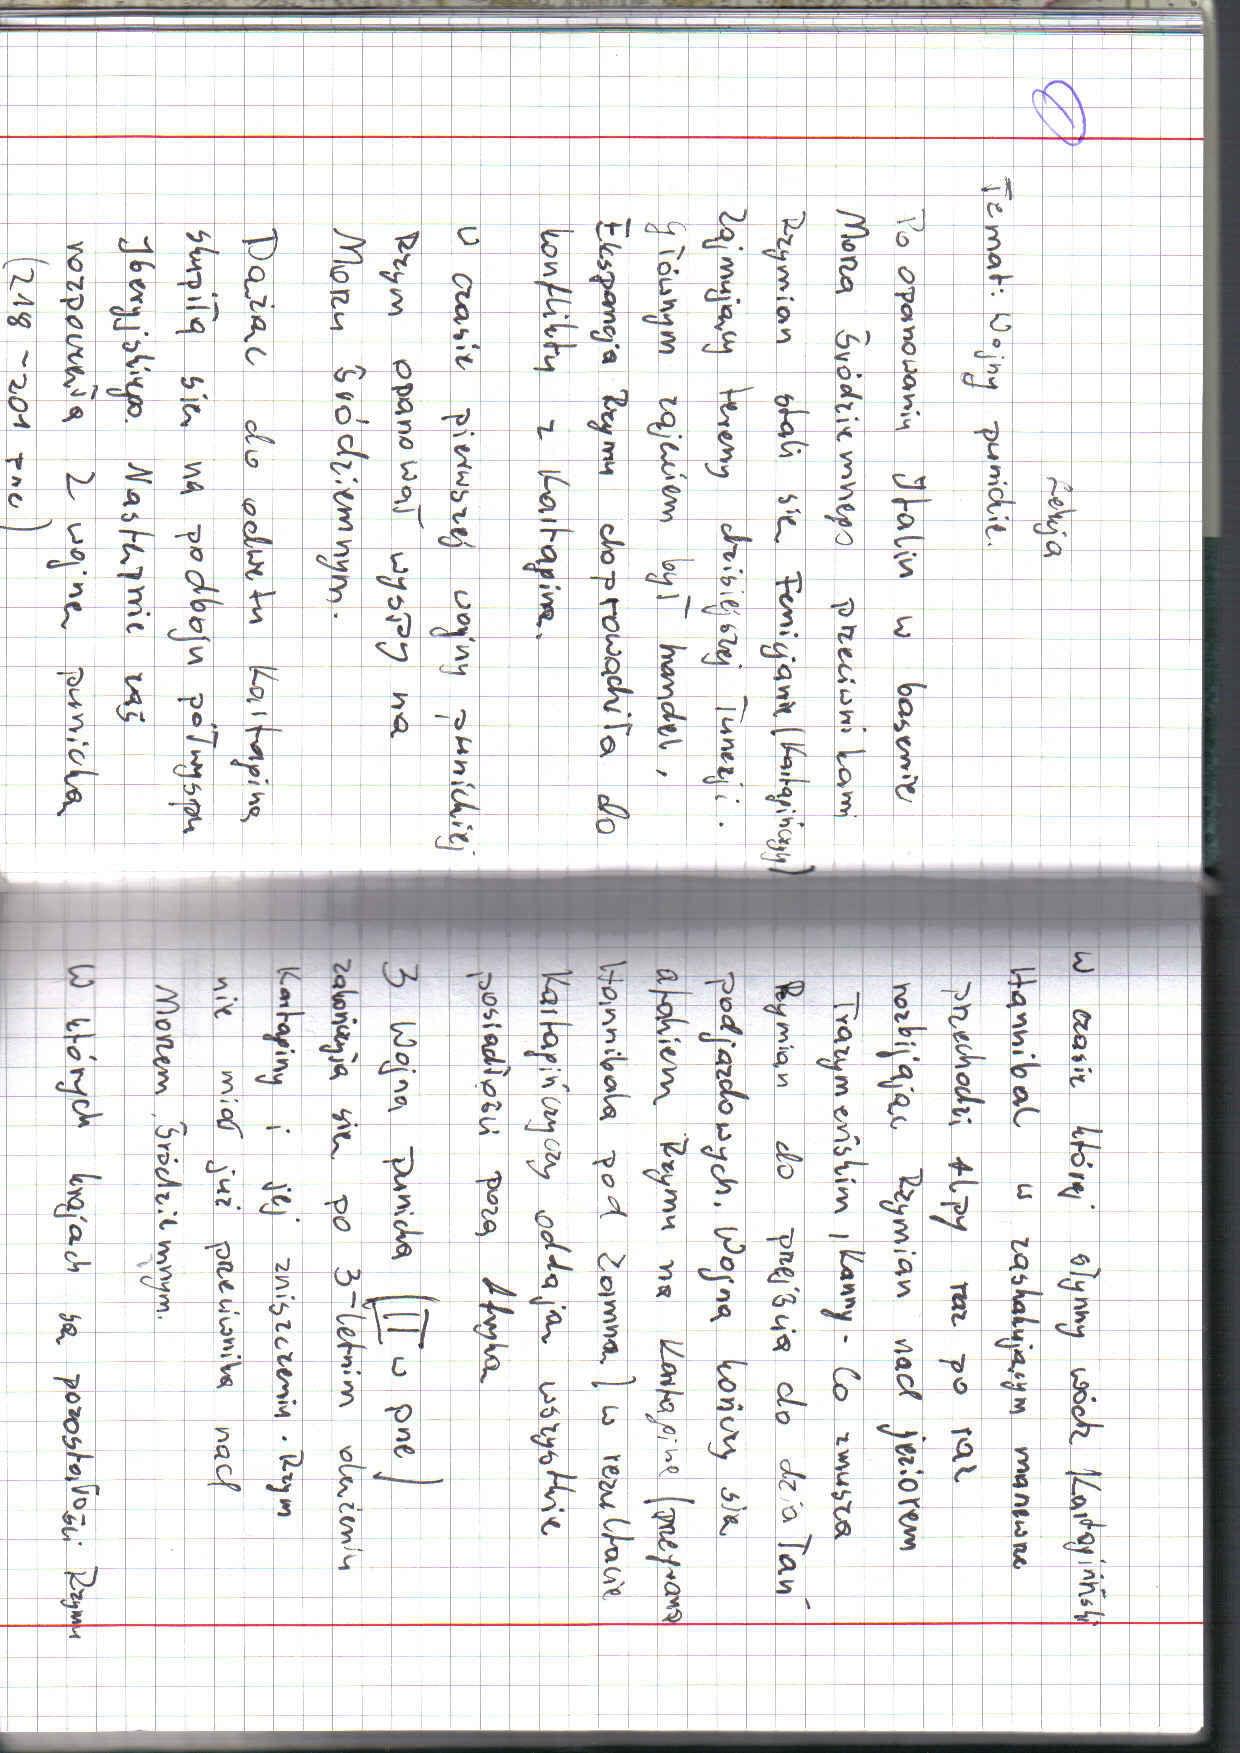 1
Lekcja
Temat: Wojny punickie.
Po opanowaniu Italii w basenie
Morza Śródziemnego przeciwnikami
Rzymian stali się Fenicjanie (Kartagińczycy)
zajmujący tereny dzisiejszej Tunezji.
Głównym zajęciem był handel,
Ekspansja Rzymu doprowadziła do
konfliktu z Kartaginą.
W czasie pierwszej wojny punickiej
Rzym opanował wyspy na
Morzu Śródziemnym.
Dążąc do odwetu Kartagina
skupiła się na podboju półwyspu
Iberyjskiego. Następnie zaś
rozpoczęła 2 wojnę punicką
(218-201 pne)
w czasie której słynny wódz Kartagiński
Hannibal w zaskakującym manewrze
przechodzi Alpy raz po raz
rozbijając Rzymian nad jeziorem
Trazymeńskim, Kanny - Co zmusza
Rzymian do przejścia do działań
podjazdowych. Wojna kończy się
atakiem Rzymu na Kartaginę (przegrana
Hannibala pod Zammą) w rezultacie
Kartagińczycy oddają wszystkie
posiadłości poza Afryką
3 Wojna punicka (II w pne)
zakończyła się po 3-letnim oblężeniu
Kartaginy i jej zniszczeniu. Rzym
nie miał już przeciwnika nad
Morzem Śródziemnym.
W których krajach są pozostałości Rzymu